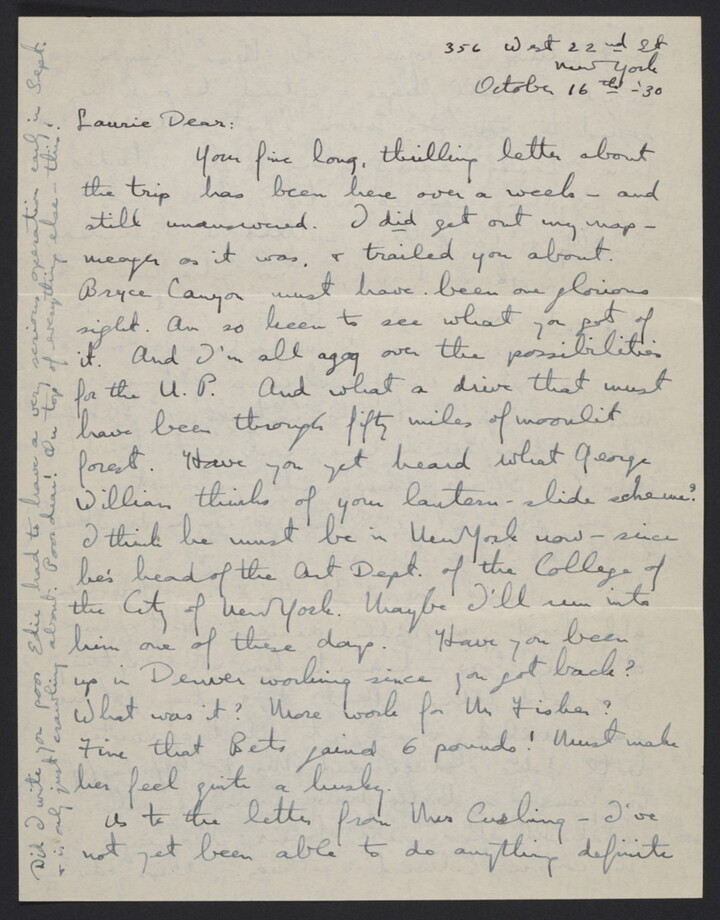 356 West 22nd St
New York
October 16th -'30
Laurie Dear:
Your fine long, thrilling letter about
the trip has been here over a week - and
still unanswered. I did get out my map -
meager as it was, & trailed you about.
Bryce Canyon must have been one glorious
sight. Am so keen to see what you got of
it. And I'm all agog over the possibilities
for the U.P. And what a drive that must
have been through fifty miles of moonlit
forest. Have you yet heard what George
William thinks of your lantern-slide scheme?
I think he must be in New York now - since
he's head of the Art Dept. of the College of
the City of New York. Maybe I'll run into
him one of these days. Have you been
up in Denver working since you got back?
What was it? More work for Mr Fisher?
Fine that Bets gained 6 pounds! Must make
her feel quite a husky.
As to the letter from Mrs Cushing - I've
not yet been able to do anything definite
Did I write you poor Edie had to have a very serious operation early in Sept.
& is only just crawling about. Poor dear! On top of everything else - this!